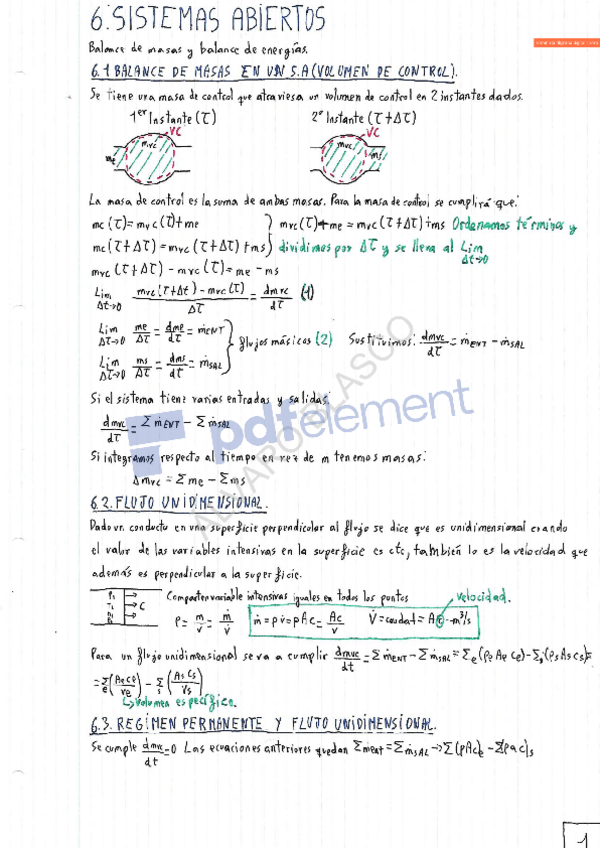 6. SISTEMAS ABIERTOS
Balance de masas y balance de energías.
6.1 BALANCE DE MASAS EN UN S.A (VOLUMEN DE CONTROL).
Se tiene una masa de control que atraviesa un volumen de control en 2 instantes dados.
1er Instante (τ) 2º Instante (τ+Δτ)
VC VC
me mvc mvc ms
La masa de control es la suma de ambas masas. Para la masa de control se cumplirá que:
mc (τ) = mvc (τ) + me } mvc (τ) + me = mvc (τ+Δτ) + ms Ordenamos términos y
mc (τ+Δτ) = mvc (τ+Δτ) + ms } dividimos por Δτ y se lleva al Lim Δτ→0
mvc (τ+Δτ) - mvc (τ) = me - ms
Lim Δτ→0 mvc (τ+Δt) - mvc (τ) / Δτ = dmvc / dτ (1)
Lim Δτ→0 me / Δτ = dme / dτ = ṁENT } flujos másicos (2) Sustituimos: dmvc / dτ = ṁENT - ṁSAL
Lim Δτ→0 ms / Δτ = dms / dτ = ṁSAL
Si el sistema tiene varias entradas y salidas:
dmvc / dτ = Σ ṁENT - Σ ṁSAL
pdfelement
ALVARO BLASCO
Si integramos respecto al tiempo en vez de ṁ tenemos masas:
Δmvc = Σ me - Σ ms
6.2. FLUJO UNIDIMENSIONAL.
Dado un conducto en una superficie perpendicular al flujo se dice que es unidimensional cuando
el valor de las variables intensivas en la superficie es cte, también lo es la velocidad que
además es perpendicular a la superficie.
C Comparten variable intensivas iguales en todos los puntos velocidad.
ρ = m / v = ṁ / v̇ ṁ = ρ v̇ = ρ A c = Ac / v V̇ = caudal = A c - m³/s
Para un flujo unidimensional se va a cumplir dmvc / dt = Σ ṁENT - Σ ṁSAL = Σe (ρe Ae Ce) - Σs (ρs As Cs) =
= Σe (Ae Ce / ve) - Σs (As Cs / vs)
↳ Volumen específico.
6.3. REGIMEN PERMANENTE Y FLUJO UNIDIMENSIONAL.
Se cumple dmvc / dt = 0 Las ecuaciones anteriores quedan Σ ṁENT = Σ ṁSAL → Σ (ρAc)e - Σ(ρac)s
1